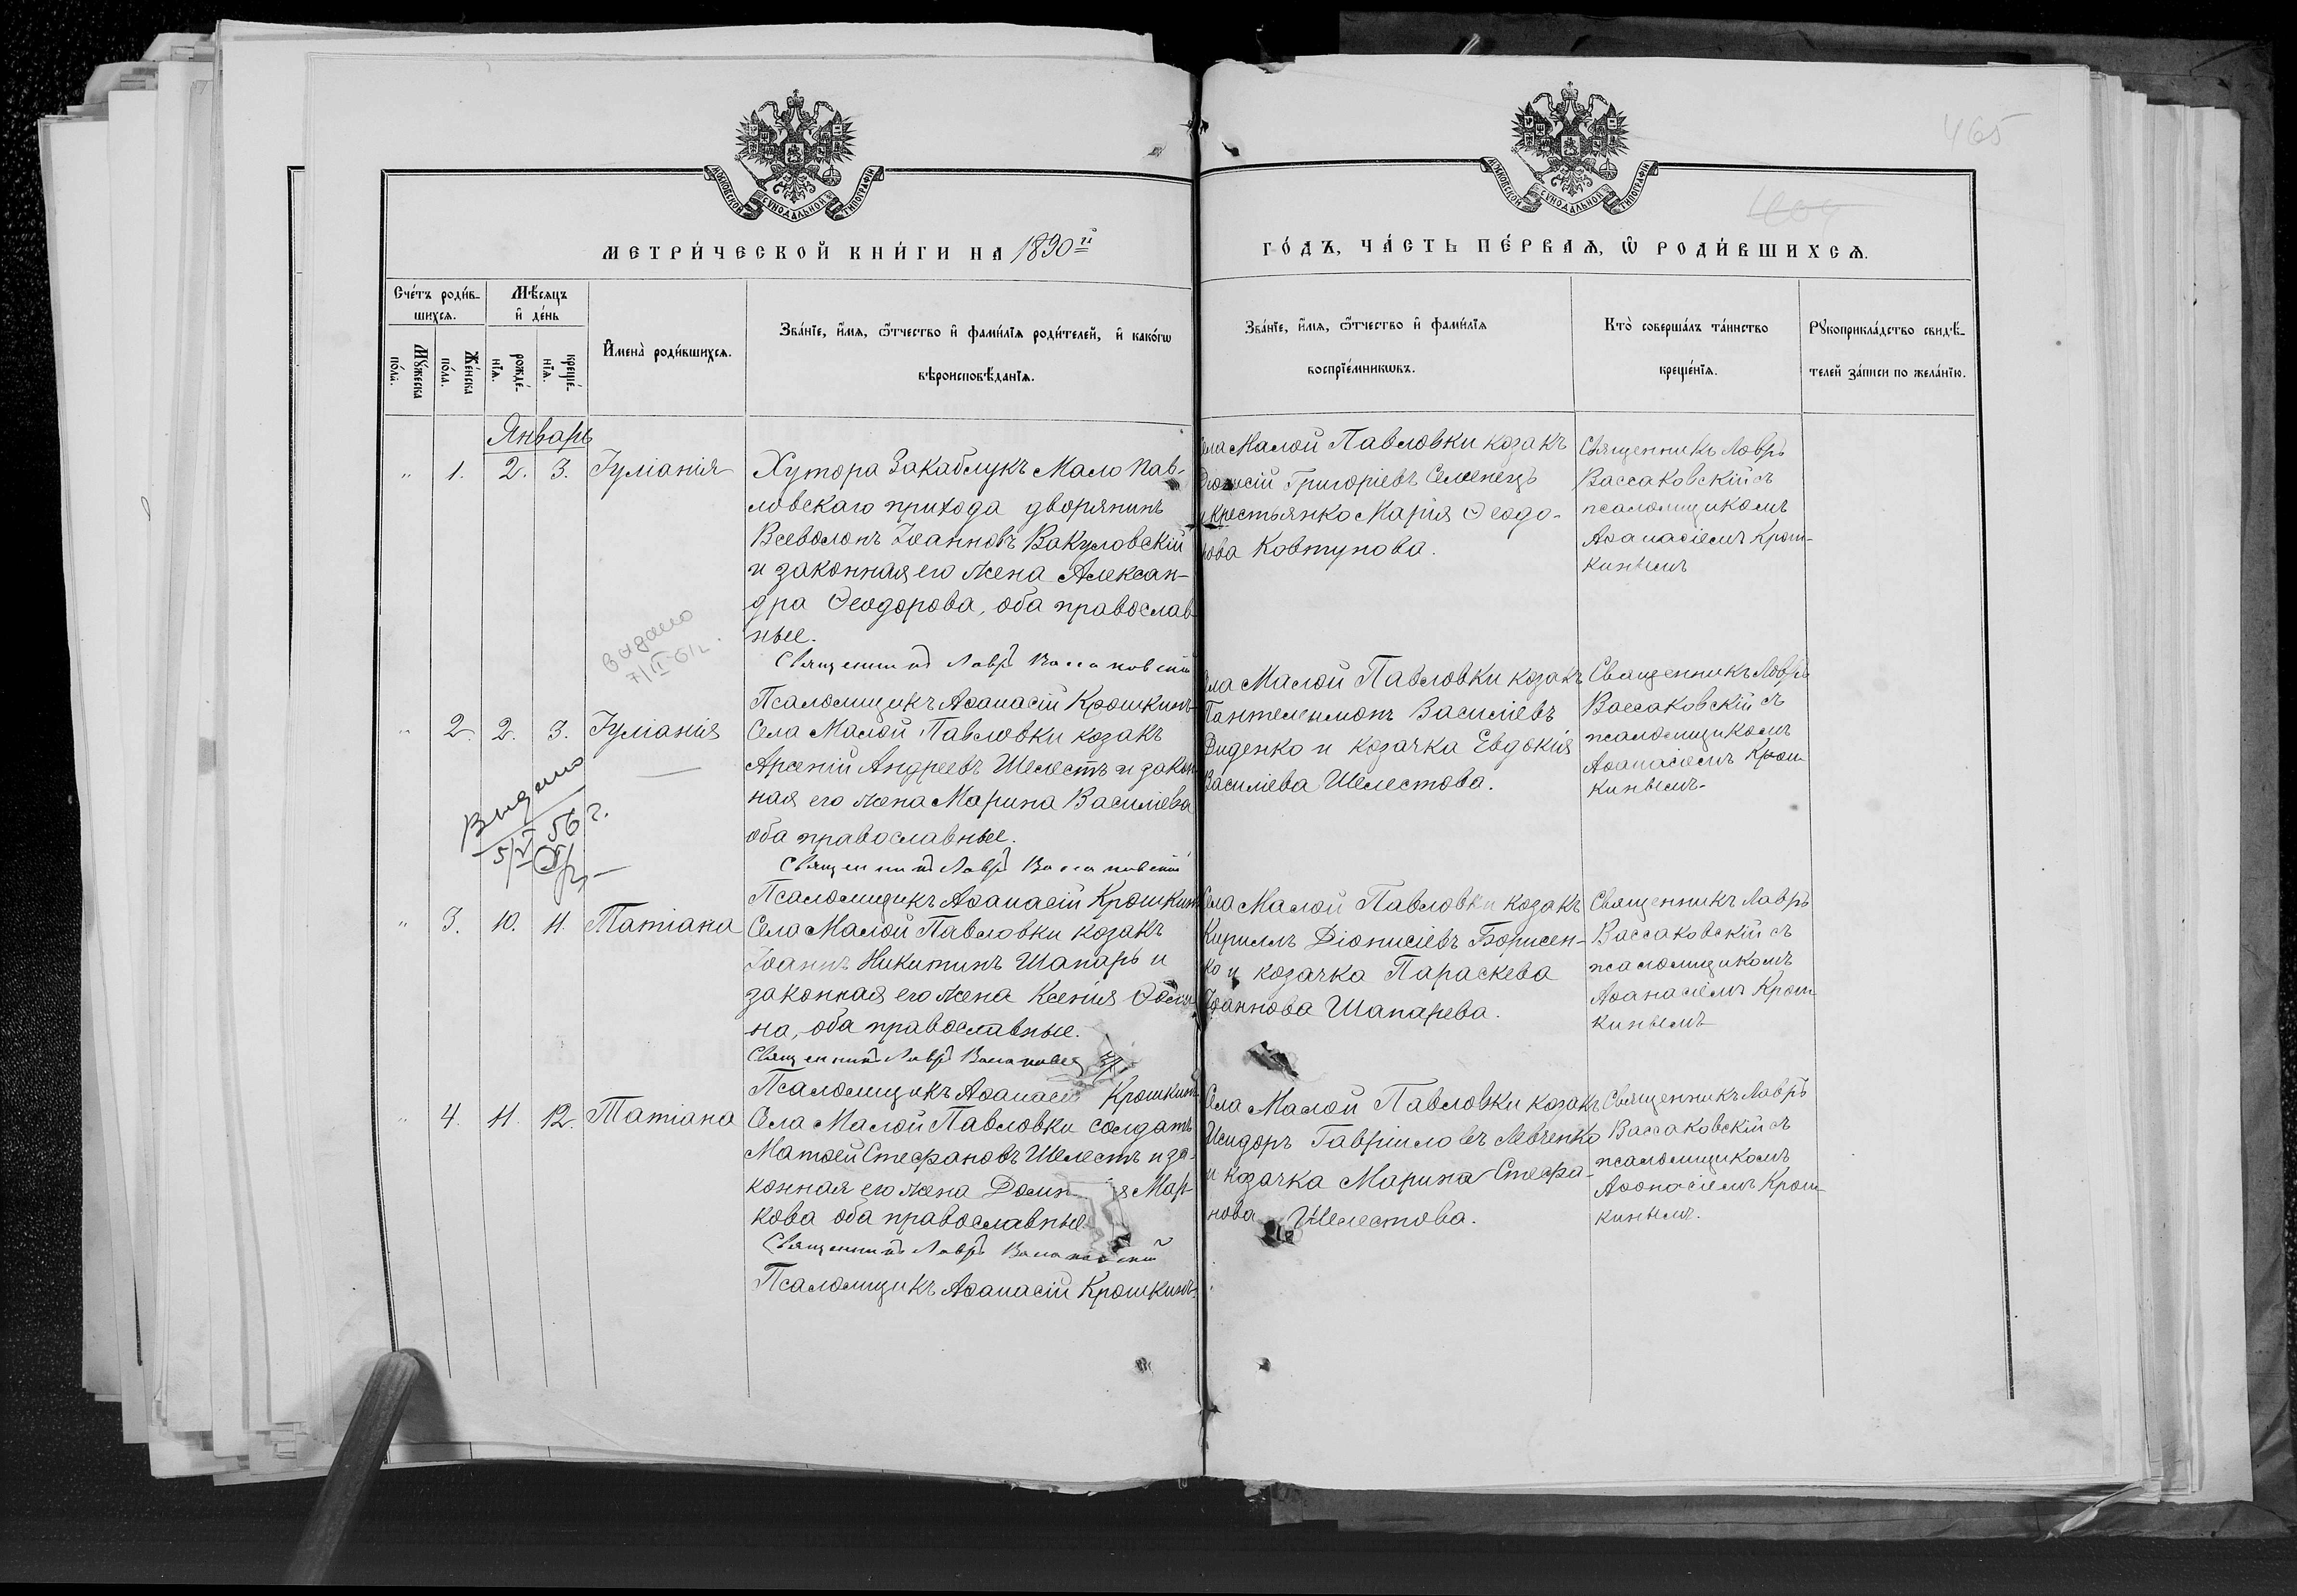 465
464
МОСКОВСКОЙ СѴНОДАЛЬНОЙ ТИПОГРАФІИ
МОСКОВСКОЙ СѴНОДАЛЬНОЙ ТИПОГРАФІИ
МЕТРИ́ЧЕСКОЙ КНИ́ГИ НА 1890й
ГО́ДЪ, ЧА́СТЬ ПЕ́РВАѦ, Ѿ РОДИ́ВШИХСѦ.
Счетъ роди́в-
шихсѧ.
Му́жеска
по́ла.
Же́нска
по́ла.
Мѣ́сѧцъ
и҆ де́нь
рожде́-
нїѧ.
креще́-
нїѧ.
И҆мена̀ роди́вшихсѧ.
Зва́нїе, и҆́мѧ, ѻ҆́тчество и҆ фами́лїѧ роди́телей, и҆ како́гѡ
вѣроисповѣ́данїѧ.
Зва́нїе, и҆́мѧ, ѻ҆́тчество и҆ фами́лїѧ
воспрїе́мникѡвъ.
Кто̀ соверша́лъ та́инство
креще́нїѧ.
Рꙋкоприкла́дство свидѣ́-
телей за́писи по жела́нїю.
Январь
" 1. 2. 3. Іуліанія
Хутора Закаблукъ Мало Пав-
ловскаго прихода дворянинъ
Всеволодъ Іоанновъ Вакуловскій
и законная его жена Алексан-
дра Ѳеодорова, оба православ
ные.
Священникъ Лавръ Вассаковскій
Псаломщикъ Аѳанасій Крошкинъ
Села Малой Павловки козакъ
Діонисій Григоріевъ Семенецъ
и крестьянка Марія Ѳеодо-
рова Ковтунова.
Священникъ Лавръ
Вассаковскій съ
псаломщикомъ
Аѳанасіемъ Крош-
кинымъ
видано
7/II 61г.
" 2. 2. 3. Іуліанія
Села Малой Павловки козакъ
Арсеній Андреевъ Шелестъ и закон
ная его жена Марина Василіева
оба православные.
Священникъ Лавръ Вассаковскій
Псаломщикъ Аѳанасій Крошкинъ
Села Малой Павловки козакъ
Пантелеимонъ Василіевъ
Диденко и козачка Евдокія
Василіева Шелестова.
Священникъ Лавръ
Вассаковскій съ
псаломщикомъ
Аѳанасіемъ Крош
кинымъ.
Видано
56 г.
" 3. 10. 11. Татіана
Села Малой Павловки козакъ
Іоаннъ Никитинъ Шапаръ и
законная его жена Ксенія
на, оба православные.
Священникъ Лавръ
Псаломщикъ Аѳанасій Крошкинъ
Села Малой Павловки козакъ
Кириллъ Діонисіевъ Борисен-
ко и козачка Параскева
Іоаннова Шапарева.
Священникъ Лавръ
Вассаковскій съ
псаломщикомъ
Аѳанасіемъ Крош
кинымъ
" 4. 11. 12. Татіана
Села Малой Павловки солдатъ
Матѳей Стефановъ Шелестъ и за-
конная его жена Мар-
кова оба православные
Священникъ Лавръ Вассаковскій
Псаломщикъ Аѳанасій Крошкинъ.
Села Малой Павловки козакъ
Исидоръ Гавріиловъ Левченко
и козачка Марина Стефа-
нова Шелестова.
Священникъ Лавръ
Вассаковскій съ
псаломщикомъ
Аѳанасіемъ Крош-
кинымъ.